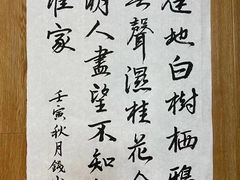 庭地白樹栖鴉
無聲濕桂花今
明人盡望不知
誰家
壬寅秋月錢